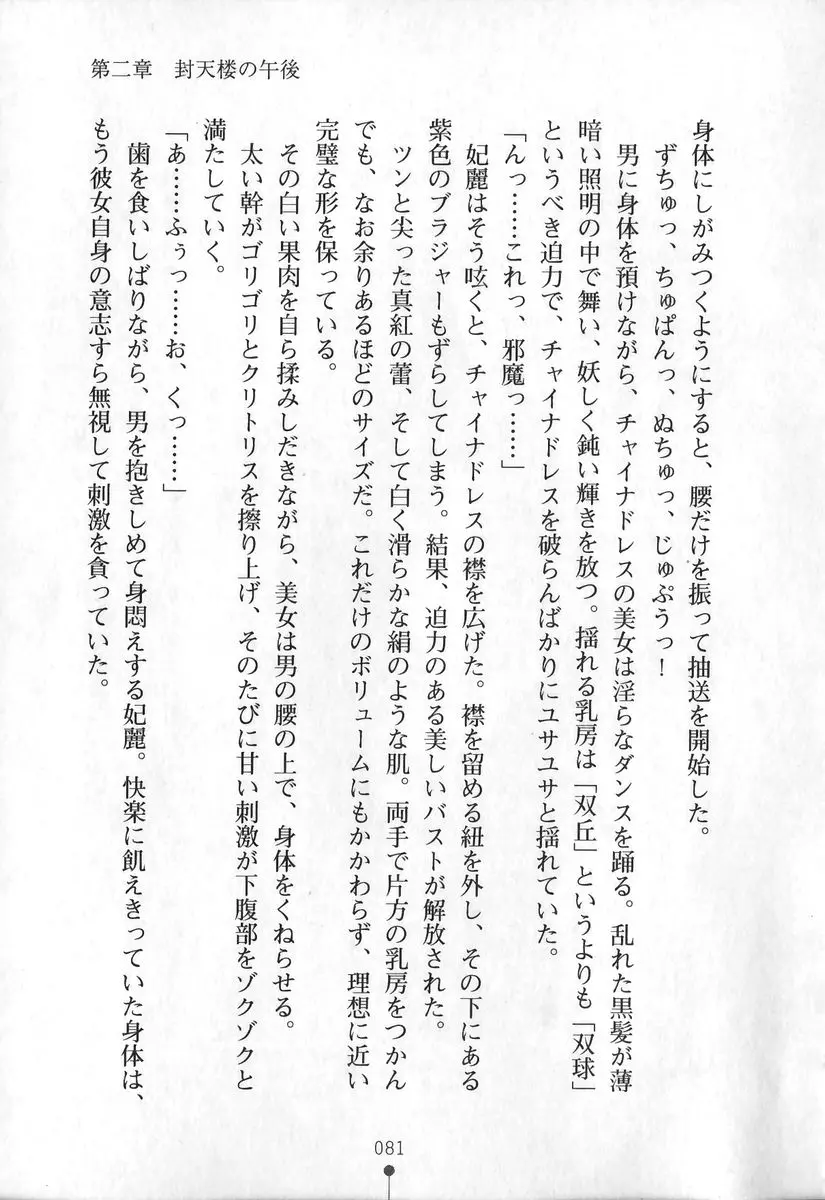 第二章　封天楼の午後
身体にしがみつくようにすると、腰だけを振って抽送を開始した。
ずちゅっ、ちゅぱんっ、ぬちゅっ、じゅぷうっ！
男に身体を預けながら、チャイナドレスの美女は淫らなダンスを踊る。乱れた黒髪が薄
暗い照明の中で舞い、妖しく鈍い輝きを放つ。揺れる乳房は「双丘」というよりも「双球」
というべき迫力で、チャイナドレスを破らんばかりにユサユサと揺れていた。
「んっ……これっ、邪魔っ……」
妃麗はそう呟くと、チャイナドレスの襟を広げた。襟を留める紐を外し、その下にある
紫色のブラジャーもずらしてしまう。結果、迫力のある美しいバストが解放された。
ツンと尖った真紅の蕾、そして白く滑らかな絹のような肌。両手で片方の乳房をつかん
でも、なお余りあるほどのサイズだ。これだけのボリュームにもかかわらず、理想に近い
完璧な形を保っている。
その白い果肉を自ら揉みしだきながら、美女は男の腰の上で、身体をくねらせる。
太い幹がゴリゴリとクリトリスを擦り上げ、そのたびに甘い刺激が下腹部をゾクゾクと
満たしていく。
「あ……ふぅっ……お、くっ……」
歯を食いしばりながら、男を抱きしめて身悶えする妃麗。快楽に飢えきっていた身体は、
もう彼女自身の意志すら無視して刺激を貪っていた。
081